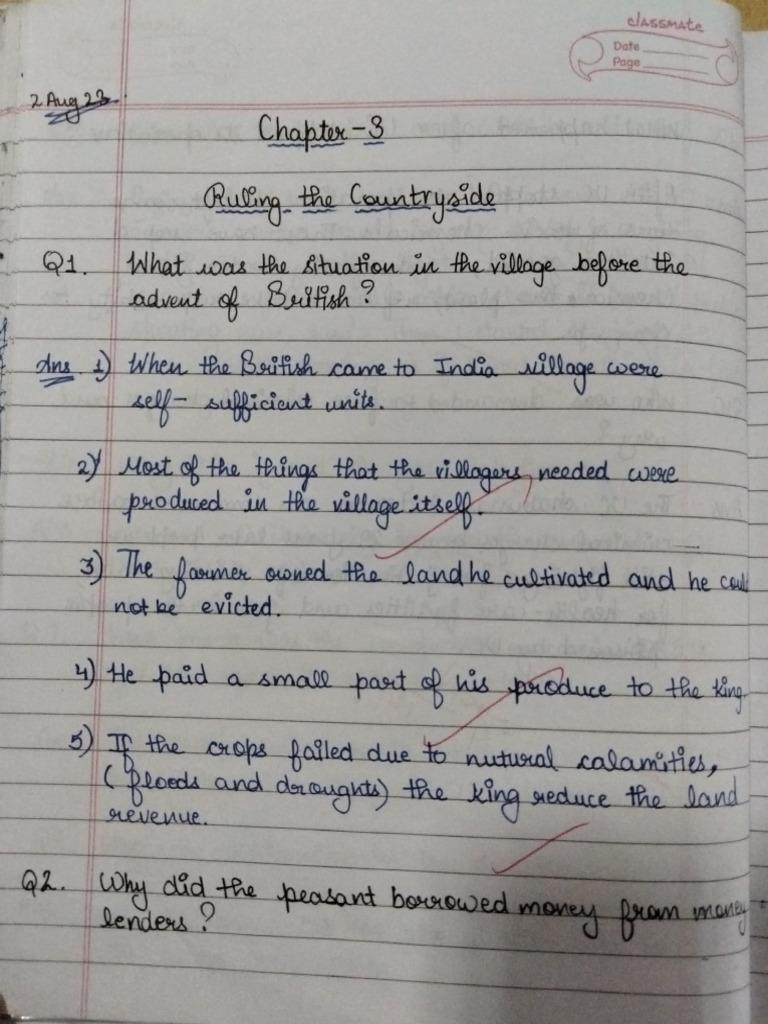 classmate
Date
Page
2 Aug 23
Chapter-3
Ruling the Countryside
Q1. What was the situation in the village before the
advent of British?
Ans 1) When the British came to India village were
self- sufficient units.
2) Most of the things that the villagers needed were
produced in the village itself.
3) The farmer owned the land he cultivated and he could
not be evicted.
4) He paid a small part of his produce to the king
5) If the crops failed due to nutural calamities,
(floods and droughts) the king reduce the land
revenue.
Q2. Why did the peasant borrowed money from money
lenders?